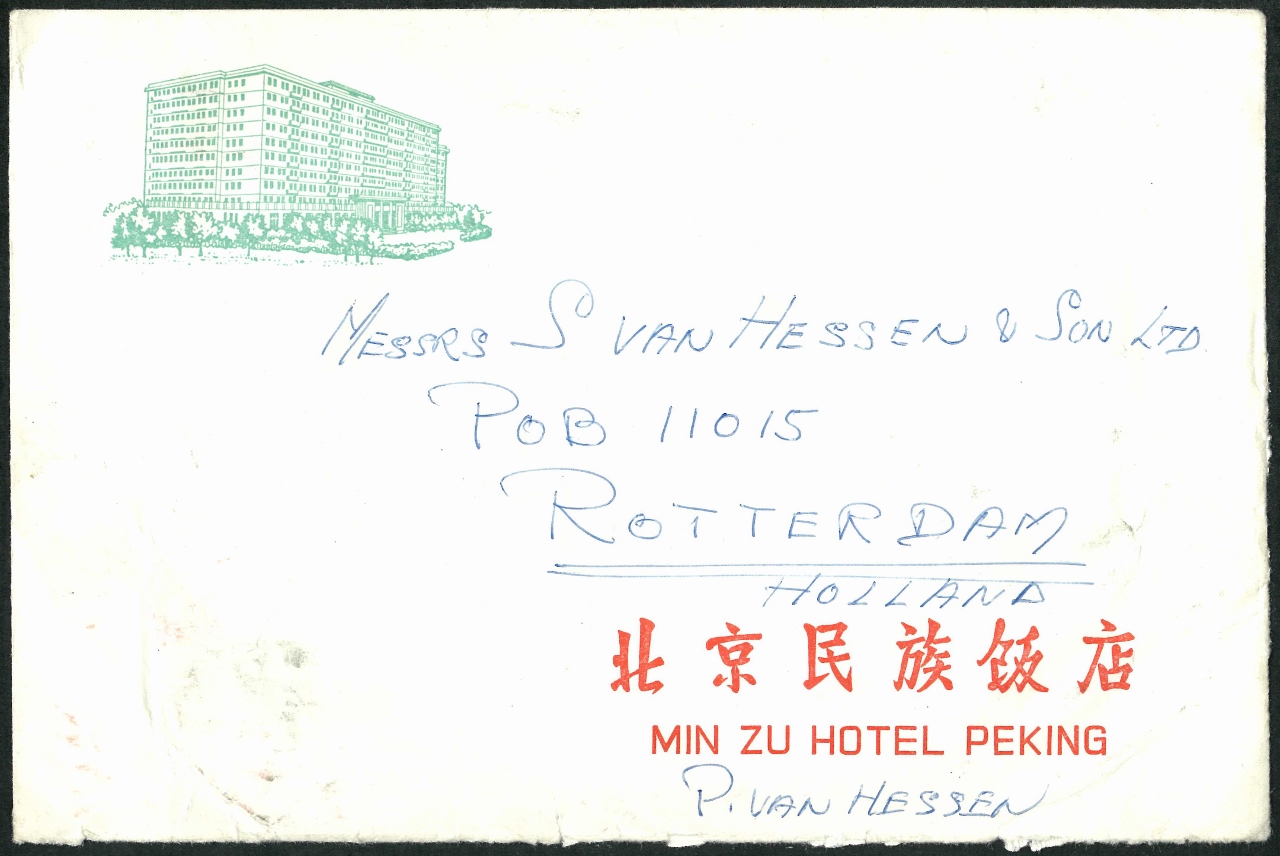 MESSRS S VAN HESSEN & SON LTD
POB 11015
ROTTERDAM
HOLLAND
北京民族饭店
MIN ZU HOTEL PEKING
P. VAN HESSEN